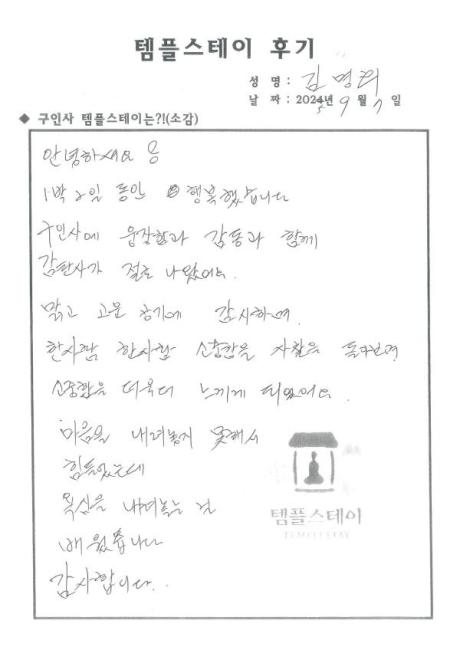 템플스테이 후기
성 명 : 김명희
날 짜 : 2025년 9월 7일
◆ 구인사 템플스테이는?!(소감)
안녕하세요
1박 2일 동안 행복했습니다
구인사에 웅장함과 감동과 함께
감탄사가 절로 나왔어요.
맑고 고운 공기에 감사하며
한사람 한사람 소중함을 사찰을 돌아보며
소중함을 더욱더 느끼게 되었어요.
마음을 내려놓지 못해서
힘들었는데
욕심을 내려놓는 법
배웠습니다
감사합니다..
템플스테이
TEMPLESTAY